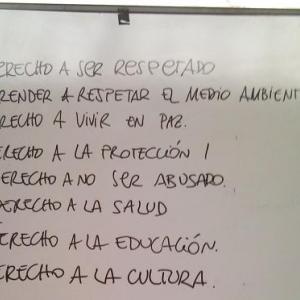 ERECHO A SER RESPETADO
RENDER A RESPETAR EL MEDIO AMBIENT
RECHO A VIVIR EN PAZ.
ERECHO A LA PROTECCIÓN /
ERECHO A NO SER ABUSADO.
DERECHO A LA SALUD
ERECHO A LA EDUCACIÓN.
ERECHO A LA CULTURA.